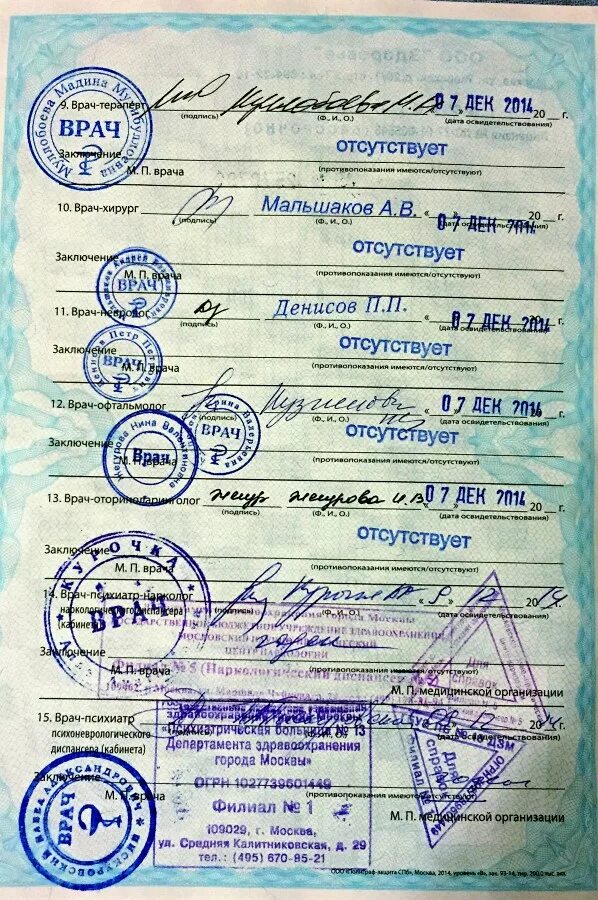 9. Врач-терапевт Муллобоева М.А. 07 ДЕК 2014 20 г.
(подпись) (Ф., И., О.) (дата освидетельствования)
Муллобоева Мадина
ВРАЧ
отсутствует
Заключение
М. П. врача (противопоказания имеются/отсутствуют)
10. Врач-хирург Мальшаков А.В. « 07 ДЕК 2014 20 г.
(подпись) (Ф., И., О.) (дата освидетельствования)
отсутствует
Заключение
М. П. врача (противопоказания имеются/отсутствуют)
ВРАЧ
11. Врач-невролог Денисов П.П. « 07 ДЕК 2014 20 г.
(подпись) (Ф., И., О.) (дата освидетельствования)
отсутствует
Заключение
Денисов Петр Петрович
ВРАЧ
М. П. врача (противопоказания имеются/отсутствуют)
12. Врач-офтальмолог 07 ДЕК 2014 20 г.
(подпись) (Ф., И., О.) (дата освидетельствования)
Валерьевна
ВРАЧ
отсутствует
Заключение
Жегурова Нина Валентиновна
Врач
М. П. врача (противопоказания имеются/отсутствуют)
13. Врач-оториноларинголог жегур жегурова Н.В 07 ДЕК 2014 20 г.
(подпись) (Ф., И., О.) (дата освидетельствования)
отсутствует
Заключение
М. П. врача (противопоказания имеются/отсутствуют)
КУРОЧКА
ВРАЧ
14. Врач-психиатр-нарколог
наркологического диспансера
(кабинета)
здравоохранения города Москвы
ГОСУДАРСТВЕННОЕ БЮДЖЕТНОЕ УЧРЕЖДЕНИЕ ЗДРАВООХРАНЕНИЯ
МОСКОВСКИЙ
ЦЕНТР НАРКОЛОГИИ
Филиал № 5 (Наркологический диспансер
109462, г. Москва
Для
справок
№ 5
М. П. медицинской организации
15. Врач-психиатр 20 г.
психоневрологического
диспансера (кабинета)
здравоохранения города Москвы
«Психиатрическая больница № 13
Департамента здравоохранения
города Москвы»
ОГРН 1027739601449
Филиал № 1
109029, г. Москва,
ул. Средняя Калитниковская, д. 29
тел.: (495) 670-85-21
№ 13 ДЗМ
Для
справок
Филиал № 1
Заключение
М. П. врача противопоказания имеются/отсутствуют)
М. П. медицинской организации
АЛЕКСАНДРОВИЧ
ПИСКУРОВСКИЙ ПАВЕЛ
ВРАЧ
ООО «Полиграф-защита СПб», Москва, 2014, уровень «В», зак. 93-14, тир. 200,0 тыс. экз.